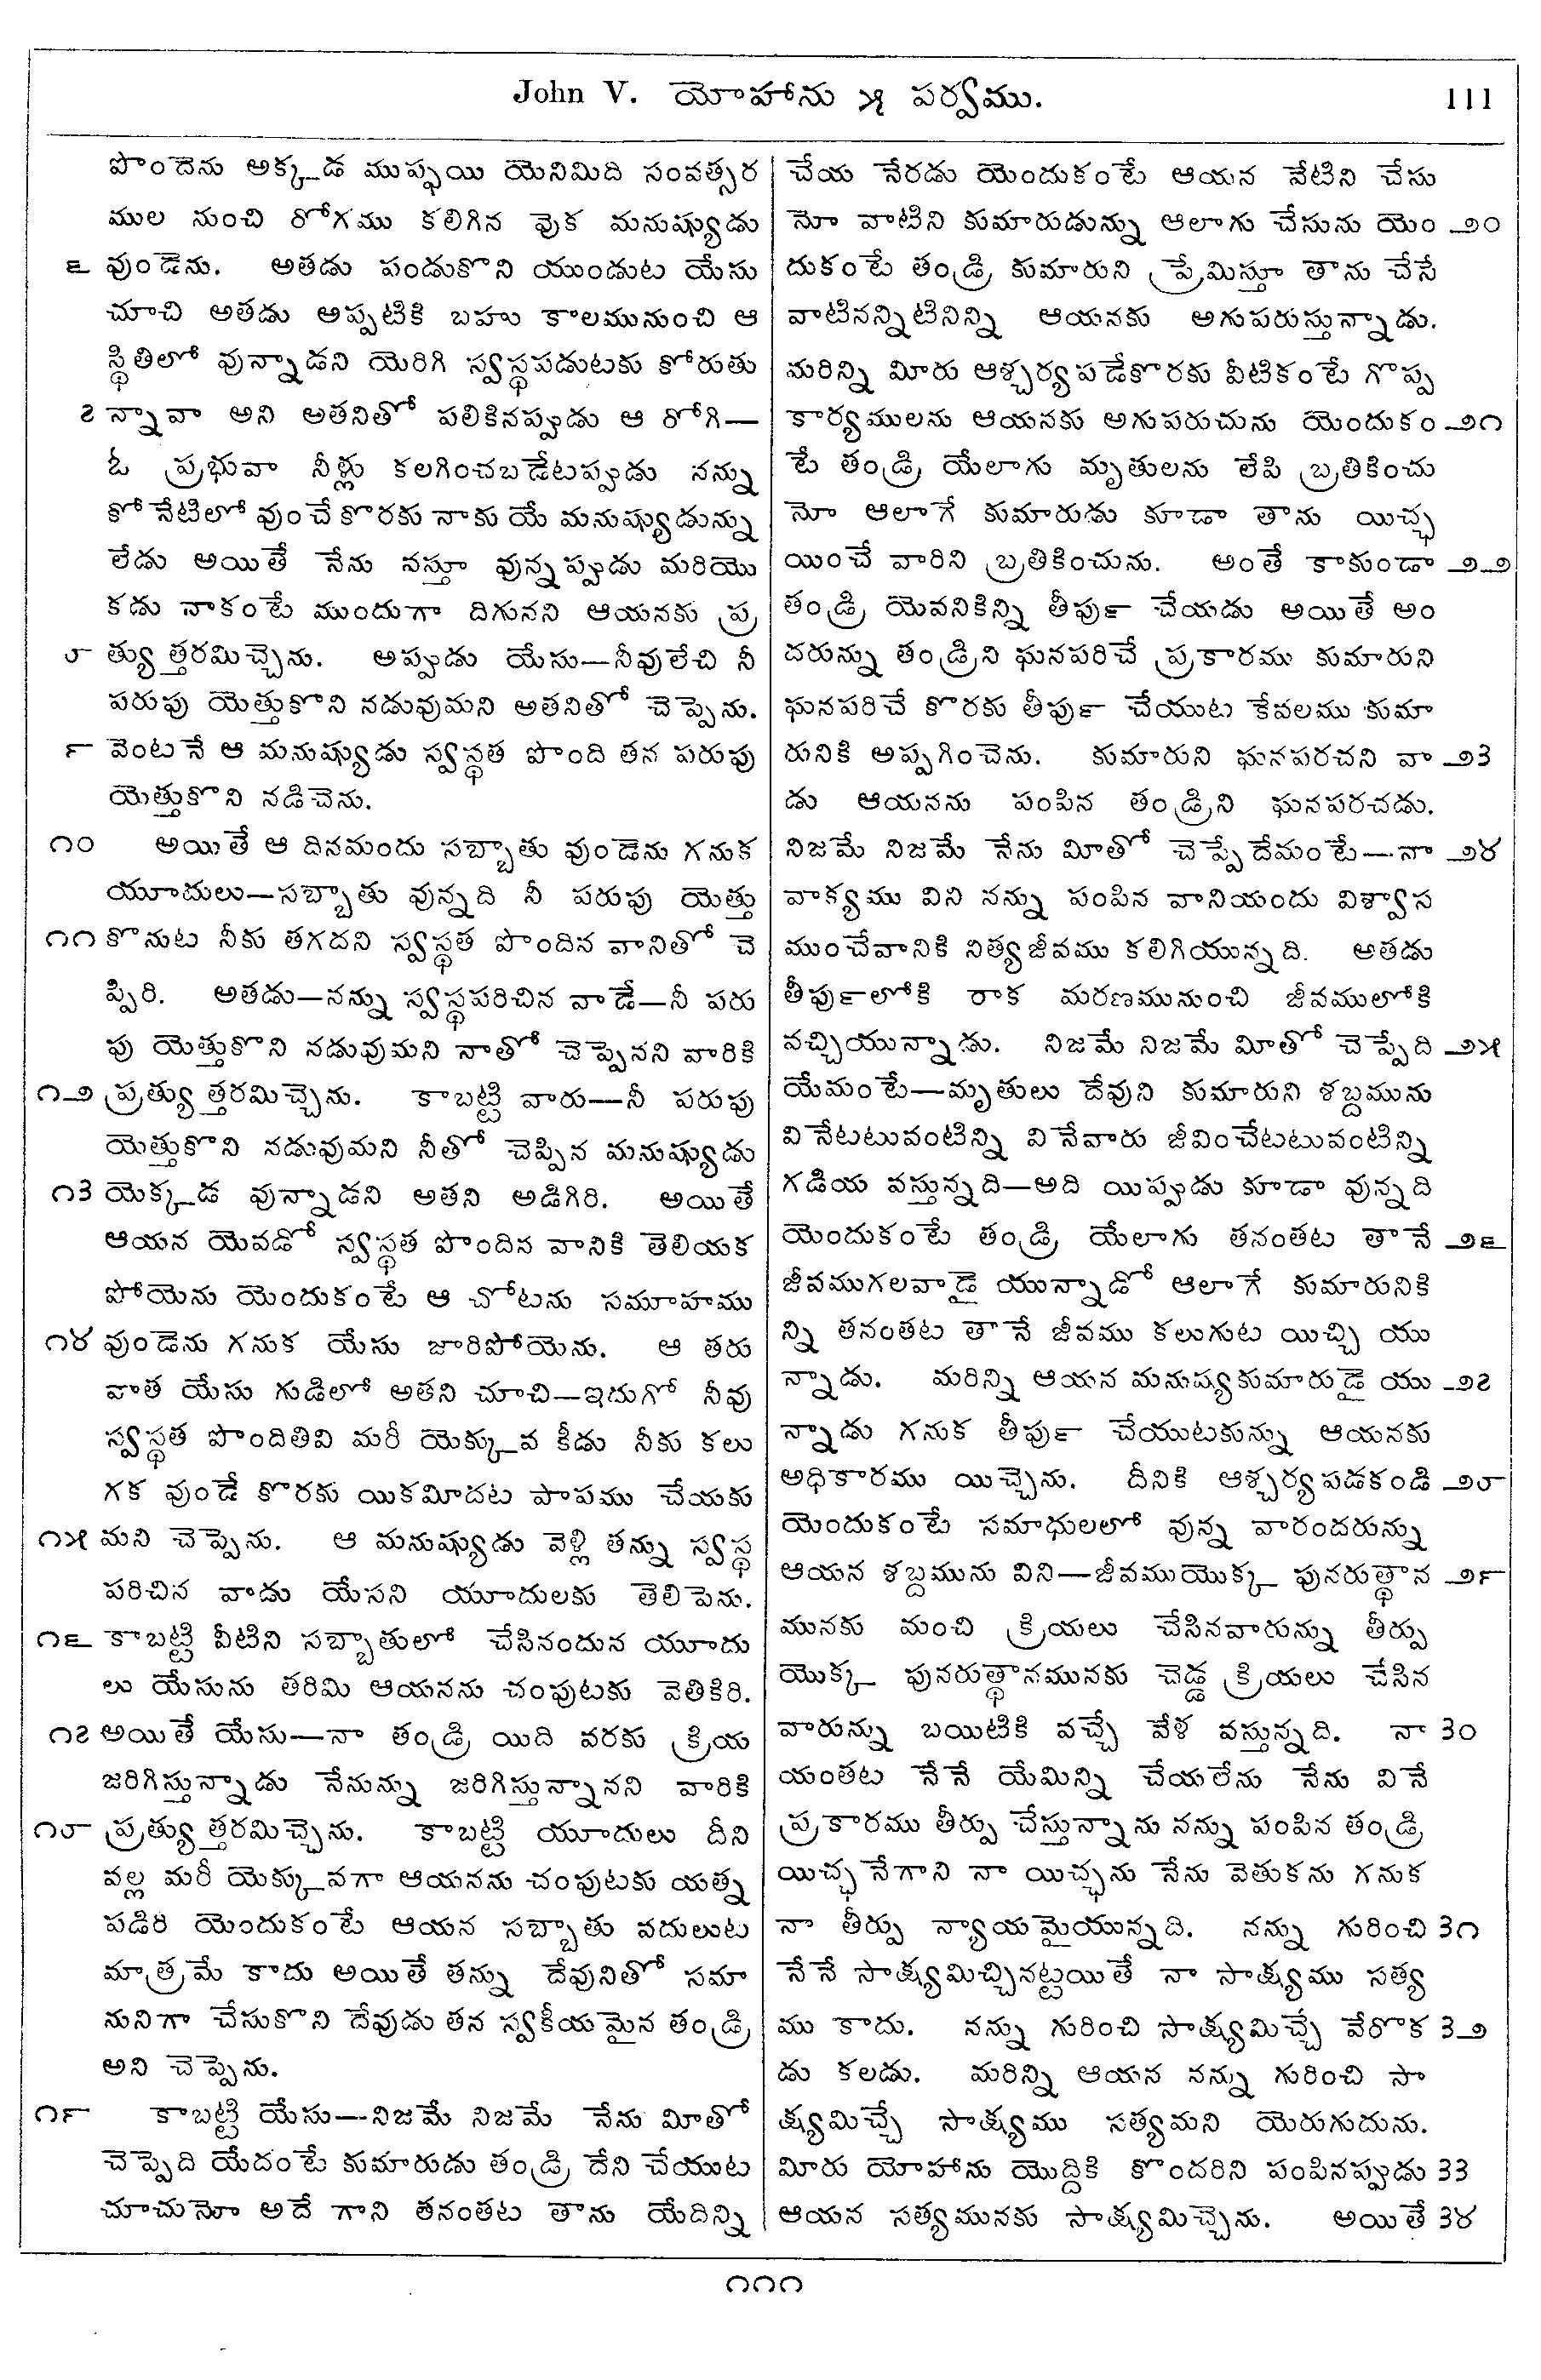 John V. యోహాను ౫ పర్వము. 111
పొందెను అక్కడ ముప్ఫయి యెనిమిది సంవత్సర
ముల నుంచి రోగము కలిగిన వుక మనుష్యుడు
౬ వుండెను. అతడు పండుకొని యుండుట యేసు
చూచి అతడు అప్పటికి బహు కాలమునుంచి ఆ
స్థితిలో వున్నాడని యెరిగి స్వస్థపడుటకు కోరుతు
౭ న్నావా అని అతనితో పలికినప్పుడు ఆ రోగి—
ఓ ప్రభువా నీళ్లు కలగించబడేటప్పుడు నన్ను
కోనేటిలో వుంచే కొరకు నాకు యే మనుష్యుడున్ను
లేడు అయితే నేను నస్తూ వున్నప్పుడు మరియొ
కడు నాకంటే ముందుగా దిగునని ఆయనకు ప్ర
౮ త్యుత్తరమిచ్చెను. అప్పుడు యేసు—నీవులేచి నీ
పరుపు యెత్తుకొని నడువుమని అతనితో చెప్పెను.
౯ వెంటనే ఆ మనుష్యుడు స్వస్థత పొంది తన పరుపు
యెత్తుకొని నడిచెను.
౧౦ అయితే ఆ దినమందు సబ్బాతు వుండెను గనుక
యూదులు—సబ్బాతు వున్నది నీ పరుపు యెత్తు
౧౧ కొనుట నీకు తగదని స్వస్థత పొందిన వానితో చె
ప్పిరి. అతడు—నన్ను స్వస్థపరిచిన వాడే—నీ పరు
పు యెత్తుకొని నడువుమని నాతో చెప్పెనని వారికి
౧౨ ప్రత్యుత్తరమిచ్చెను. కాబట్టి వారు—నీ పరుపు
యెత్తుకొని నడువుమని నీతో చెప్పిన మనుష్యుడు
౧౩ యెక్కడ వున్నాడని అతని అడిగిరి. అయితే
ఆయన యెవడో స్వస్థత పొందిన వానికి తెలియక
పోయెను యెందుకంటే ఆ చోటను సమూహము
౧౪ వుండెను గనుక యేసు జారిపోయెను. ఆ తరు
వాత యేసు గుడిలో అతని చూచి—ఇదుగో నీవు
స్వస్థత పొందితివి మరీ యెక్కువ కీడు నీకు కలు
గక వుండే కొరకు యికమీదట పాపము చేయకు
౧౫ మని చెప్పెను. ఆ మనుష్యుడు వెళ్లి తన్ను స్వస్థ
పరిచిన వాడు యేసని యూదులకు తెలిపెను.
౧౬ కాబట్టి వీటిని సబ్బాతులో చేసినందున యూదు
లు యేసును తరిమి ఆయనను చంపుటకు వెతికిరి.
౧౭ అయితే యేసు—నా తండ్రి యిది వరకు క్రియ
జరిగిస్తున్నాడు నేనున్ను జరిగిస్తున్నానని వారికి
౧౮ ప్రత్యుత్తరమిచ్చెను. కాబట్టి యూదులు దీని
వల్ల మరీ యెక్కువగా ఆయనను చంపుటకు యత్న
పడిరి యెందుకంటే ఆయన సబ్బాతు వదులుట
మాత్రమే కాదు అయితే తన్ను దేవునితో సమా
నునిగా చేసుకొని దేవుడు తన స్వకీయమైన తండ్రి
అని చెప్పెను.
౧౯ కాబట్టి యేసు—నిజమే నిజమే నేను మీతో
చెప్పెది యేదంటే కుమారుడు తండ్రి దేని చేయుట
చూచునొ అదే గాని తనంతట తాను యేదిన్ని
చేయ నేరడు యెందుకంటే ఆయన వేటిని చేసు
నొ వాటిని కుమారుడున్ను ఆలాగు చేసును యెం ౨౦
దుకంటే తండ్రి కుమారుని ప్రేమిస్తూ తాను చేసే
వాటినన్నిటినిన్ని ఆయనకు అగుపరుస్తున్నాడు.
మరిన్ని మీరు ఆశ్చర్యపడేకొరకు వీటికంటే గొప్ప
కార్యములను ఆయనకు అగుపరుచును యెందుకం ౨౧
టే తండ్రి యేలాగు మృతులను లేపి బ్రతికించు
నొ ఆలాగే కుమారుడు కూడా తాను యిచ్ఛ
యించే వారిని బ్రతికించును. అంతే కాకుండా ౨౨
తండ్రి యెవనికిన్ని తీపు౯ చేయడు అయితే అం
దరున్ను తండ్రిని ఘనపరిచే ప్రకారము కుమారుని
ఘనపరిచే కొరకు తీపు౯ చేయుట కేవలము కుమా
రునికి అప్పగించెను. కుమారుని ఘనపరచని వా ౨౩
డు ఆయనను పంపిన తండ్రిని ఘనపరచడు.
నిజమే నిజమే నేను మీతో చెప్పే దేమంటే—నా ౨౪
వాక్యము విని నన్ను పంపిన వానియందు విశ్వాస
ముంచేవానికి నిత్యజీవము కలిగియున్నది. అతడు
తీపు౯లోకి రాక మరణమునుంచి జీవములోకి
వచ్చియున్నాడు. నిజమే నిజమే మీతో చెప్పేది ౨౫
యేమంటే—మృతులు దేవుని కుమారుని శబ్దమును
వినేటటువంటిన్ని వినేవారు జీవించేటటువంటిన్ని
గడియ వస్తున్నది—అది యిప్పుడు కూడా వున్నది
యెందుకంటే తండ్రి యేలాగు తనంతట తానే ౨౬
జీవముగలవాడై యున్నాడో ఆలాగే కుమారునికి
న్ని తనంతట తానే జీవము కలుగుట యిచ్చి యు
న్నాడు. మరిన్ని ఆయన మనుష్యకుమారుడై యు ౨౭
న్నాడు గనుక తీపు౯ చేయుటకున్ను ఆయనకు
అధికారము యిచ్చెను. దీనికి ఆశ్చర్యపడకండి ౨౮
యెందుకంటే సమాధులలో వున్న వారందరున్ను
ఆయన శబ్దమును విని—జీవముయొక్క పునరుత్థాన ౨౯
మునకు మంచి క్రియలు చేసినవారున్ను తీర్పు
యొక్క పునరుత్థానమునకు చెడ్డ క్రియలు చేసిన
వారున్ను బయిటికి వచ్చే వేళ వస్తున్నది. నా ౩౦
యంతట నేనే యేమిన్ని చేయలేను నేను వినే
ప్రకారము తీర్పు చేస్తున్నాను నన్ను పంపిన తండ్రి
యిచ్ఛనేగాని నా యిచ్ఛను నేను వెతుకను గనుక
నా తీర్పు న్యాయమైయున్నది. నన్ను గురించి ౩౧
నేనే సాక్ష్యమిచ్చినట్టయితే నా సాక్ష్యము సత్య
ము కాదు. నన్ను గురించి సాక్ష్యమిచ్చే వేరొక ౩౨
డు కలడు. మరిన్ని ఆయన నన్ను గురించి సా
క్ష్యమిచ్చే సాక్ష్యము సత్యమని యెరుగుదును.
మీరు యోహాను యొద్దికి కొందరిని పంపినప్పుడు ౩౩
ఆయన సత్యమునకు సాక్ష్యమిచ్చెను. అయితే ౩౪
౧౧౧